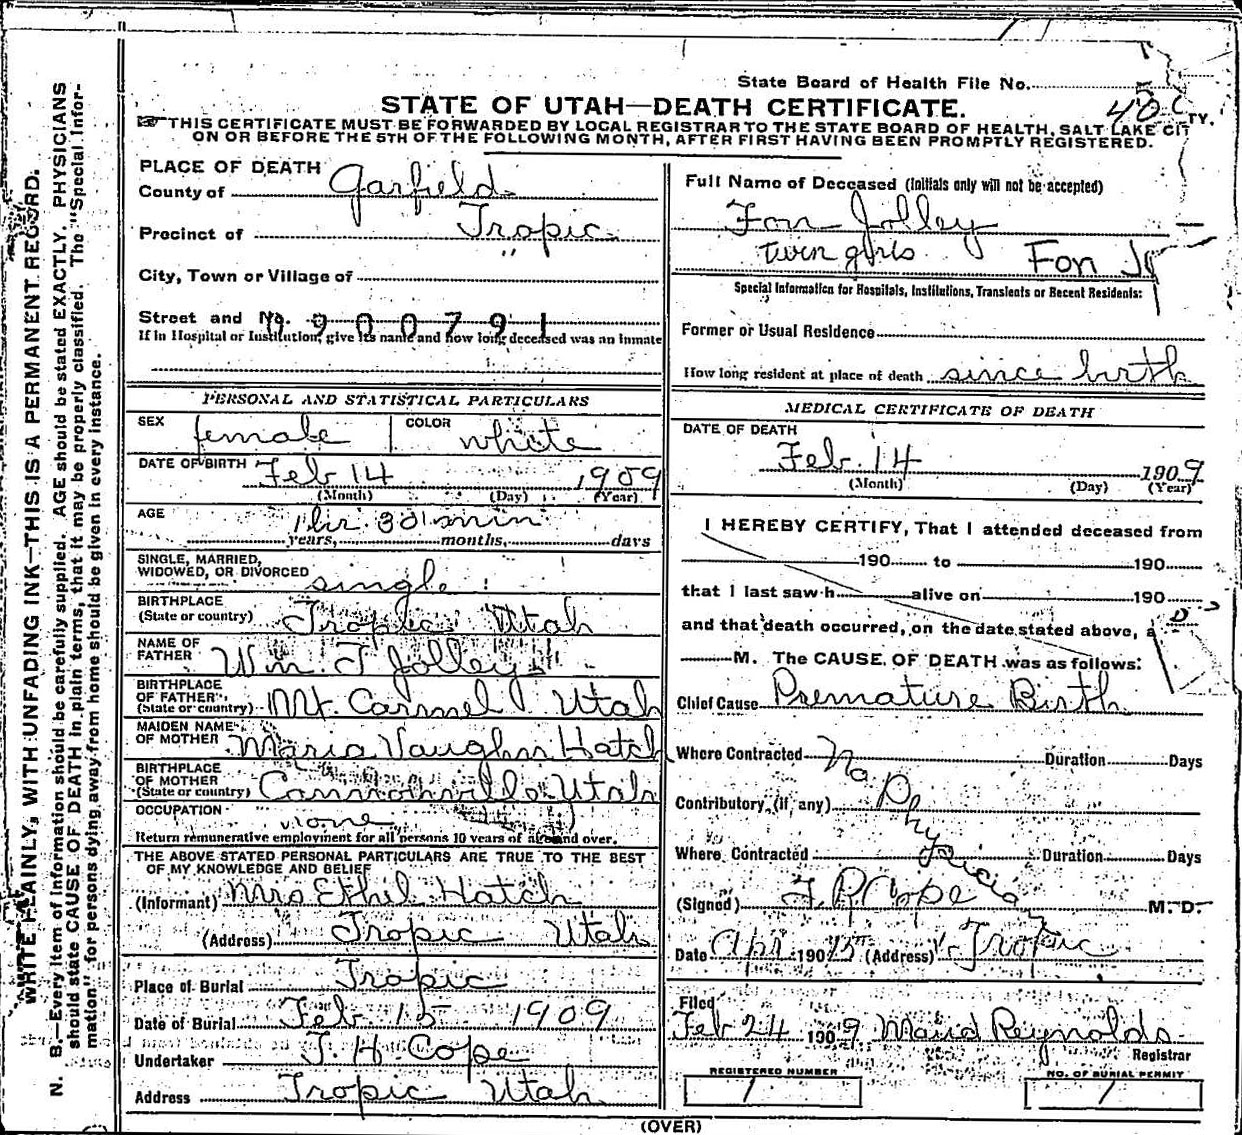 WRITE PLAINLY, WITH UNFADING INK—THIS IS A PERMANENT RECORD.
N. B.—Every item of information should be carefully supplied. AGE should be stated EXACTLY. PHYSICIANS
should state CAUSE OF DEATH in plain terms, that it may be properly classified. The "Special Infor-
mation" for persons dying away from home should be given in every instance.
State Board of Health File No.
STATE OF UTAH—DEATH CERTIFICATE.
THIS CERTIFICATE MUST BE FORWARDED BY LOCAL REGISTRAR TO THE STATE BOARD OF HEALTH, SALT LAKE CITY.
ON OR BEFORE THE 5TH OF THE FOLLOWING MONTH, AFTER FIRST HAVING BEEN PROMPTLY REGISTERED.
PLACE OF DEATH
County of Garfield
Precinct of Tropic
City, Town or Village of
Street and No. 900791
If in Hospital or Institution, give its name and how long deceased was an inmate
PERSONAL AND STATISTICAL PARTICULARS
SEX female COLOR white
DATE OF BIRTH Feb 14 1909
(Month) (Day) (Year)
AGE 1 hr. 30 min
years, months, days
SINGLE, MARRIED,
WIDOWED, OR DIVORCED single
BIRTHPLACE
(State or country) Tropic Utah
NAME OF
FATHER Wm. J Jolley
BIRTHPLACE
OF FATHER
(State or country) Mt. Carmel Utah
MAIDEN NAME
OF MOTHER Maria Vaughn Hatch
BIRTHPLACE
OF MOTHER
(State or country) Cannonville Utah
OCCUPATION none
Return remunerative employment for all persons 10 years of age and over.
THE ABOVE STATED PERSONAL PARTICULARS ARE TRUE TO THE BEST
OF MY KNOWLEDGE AND BELIEF
(Informant) Mrs Ethel Hatch
(Address) Tropic Utah
Place of Burial Tropic
Date of Burial Feb 15 1909
Undertaker J. H. Cope
Address Tropic Utah
Full Name of Deceased (Initials only will not be accepted)
Fon Jolley
twin girls Fon
Special Information for Hospitals, Institutions, Transients or Recent Residents:
Former or Usual Residence
How long resident at place of death since birth
MEDICAL CERTIFICATE OF DEATH
DATE OF DEATH
Feb. 14 1909
(Month) (Day) (Year)
I HEREBY CERTIFY, That I attended deceased from
190 to 190
that I last saw h alive on 190
and that death occurred, on the date stated above,
M. The CAUSE OF DEATH was as follows:
Chief Cause Premature Birth
Where Contracted Duration Days
No Physician
Contributory (if any)
Where Contracted Duration Days
(Signed) J. P. Cope M. D.
Date Apr 190 15 (Address) Tropic
Filed
Feb 24 1909 Maud Reynolds
Registrar
REGISTERED NUMBER NO. OF BURIAL PERMIT
1 1
(OVER)